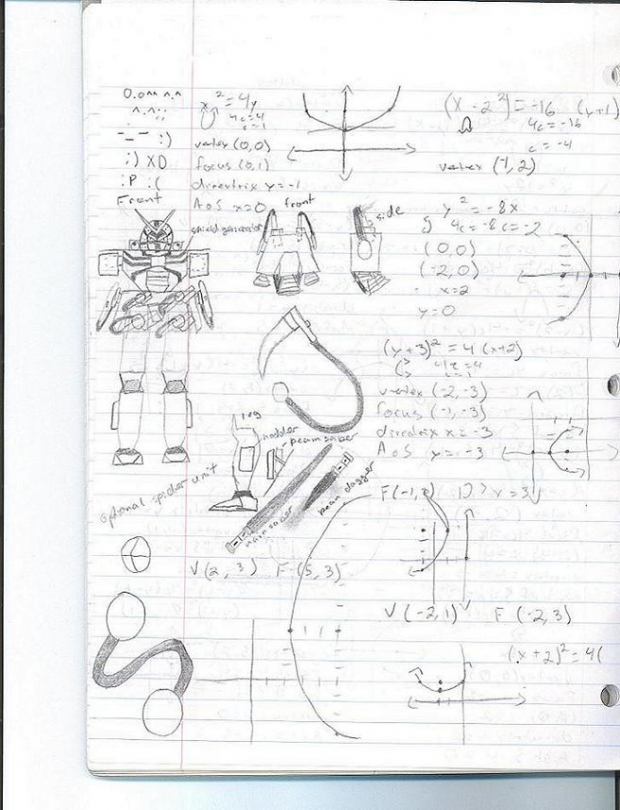 0.0^^ ^.^
^.^;;
-_- :)
;) XD
:P :(
Front
x² = 4y
4c=4
c=1
vertex (0,0)
focus (0,1)
directrix y=-1
AoS x=0
shield generator
front
side
(x-2²)=-16 (y+1)
4c=-16
c=-4
vertex (-1,2)
y² = -8x
4c=-8 c=-2
(0,0)
(-2,0)
x=2
y=0
(y+3)² = 4(x+2)
4c=4
c=1
vertex (-2,-3)
focus (-1,-3)
directrix x=-3
AoS y=-3
leg
beam saber
beam dagger
optional spider unit
V(2,3) F(5,3)
V(-2,1) F(-2,3)
(x+2)²=4(